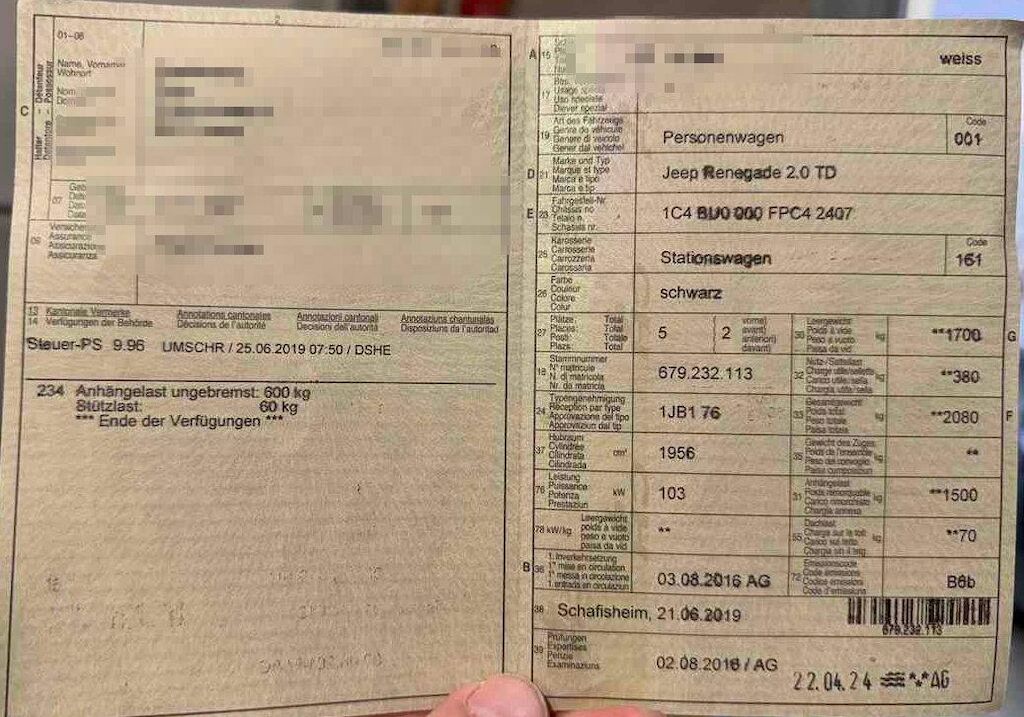 01–06
Name, Vorname
Wohnort
C
Halter - Détenteur
Detentore - Possessur
07
09
Assurance
Assicurazione
Assicuranza
13 Kantonale Vermerke
14 Verfügungen der Behörde
Annotations cantonales
Décisions de l'autorité
Annotazioni cantonali
Decisioni dell'autorità
Annotaziuns chantunalas
Disposiziuns da l'autoritad
Steuer-PS 9.96 UMSCHR / 25.06.2019 07:50 / DSHE
234 Anhängelast ungebremst: 600 kg
Stützlast: 60 kg
*** Ende der Verfügungen ***
A 15 weiss
17
Uso speciale
Diever spezial
19 Art des Fahrzeugs
Genre de véhicule
Genere di veicolo
Gener dal vehichel
Personenwagen
Code
001
D 21 Marke und Typ
Marque et type
Marca e tipo
Marca e tip
Jeep Renegade 2.0 TD
E 23 Fahrgestell-Nr.
Châssis no
Telaio n.
Schassis nr.
1C4 BU0 000 FPC4 2407
25 Karosserie
Carrosserie
Carrozzeria
Carossaria
Stationswagen
Code
161
26 Farbe
Couleur
Colore
Colur
schwarz
27 Plätze: Total
Places: Total
Posti: Totale
Plazs: Total
5
vorne)
avant)
anteriori)
davant)
2
30 Leergewicht
Poids à vide
Peso a vuoto
Paisa da vid
kg
**1700
G
18 Stammnummer
N° matricule
N. di matricola
Nr. da matricla
679.232.113
32 Nutz-/Sattellast
Charge utile/sellette
Carico utile/sella
Chargia utila/sella
kg
**380
24 Typengenehmigung
Réception par type
Approvazione del tipo
Approvaziun dal tip
1JB1 76
33 Gesamtgewicht
Poids total
Peso totale
Paisa totala
kg
**2080
F
37 Hubraum
Cylindrée
Cilindrata
Cilindrada
cm³
1956
35 Gewicht des Zuges
Poids de l'ensemble
Peso del convoglio
Paisa cumposiziun
kg
**
76 Leistung
Puissance
Potenza
Prestaziun
kW
103
31 Anhängelast
Poids remorquable
Carico rimorchiato
Chargia annexa
kg
**1500
78 kW/kg
Leergewicht
poids à vide
peso a vuoto
paisa da vid
**
55 Dachlast
Charge sur le toit
Carico sul tetto
kg
**70
B 36 1. Inverkehrsetzung
1re mise en circulation
1a messa in circolazione
1. entrada en circulaziun
03.08.2016 AG
72 Emissionscode
Code émissions
Codice emissioni
Code d'emissiuns
B6b
38 Schafisheim, 21.06.2019
679.232.113
39 Prüfungen
Expertises
Perizie
Examinaziuns
02.08.2016 / AG
22.04.24 AG